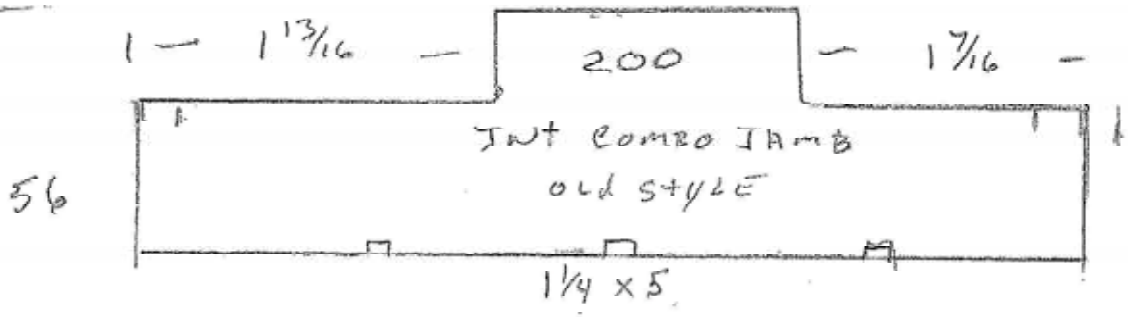 1 — 1 13/16 — 200 — 1 7/16 -
INT COMBO JAMB
OLD STYLE
56
1 1/4 x 5